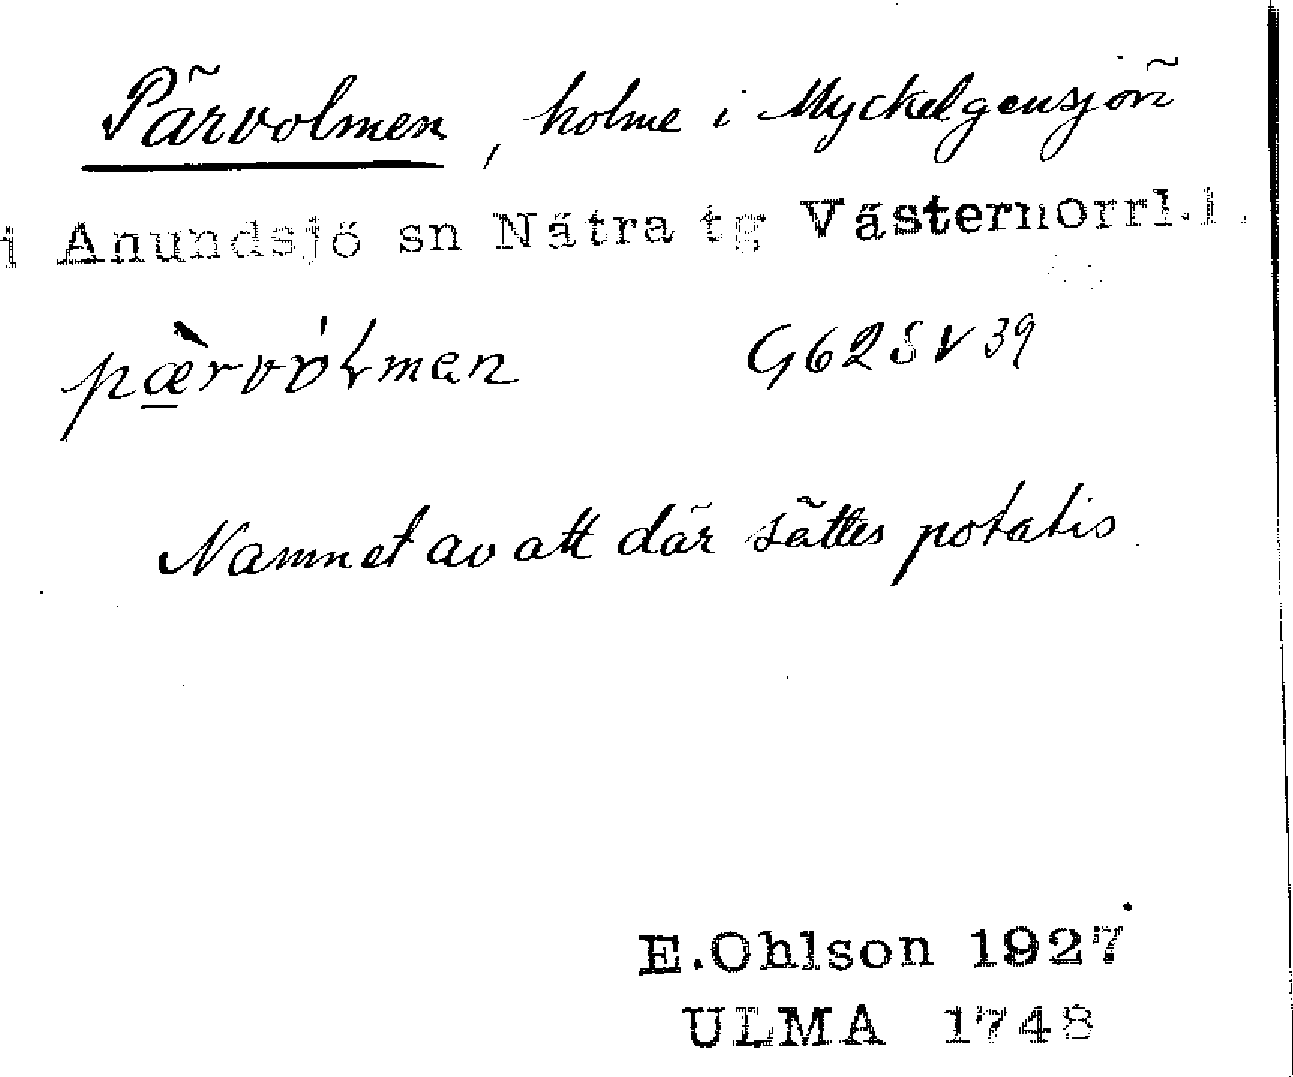 Pärvolmen, holme i Myckelgensjön
i Anundsjö sn Nätra tg Västernorrl.l.
pæ̀rvólmen G62SV39
Namnet av att där sättes potatis.
E.Ohlson 1927
ULMA 1748